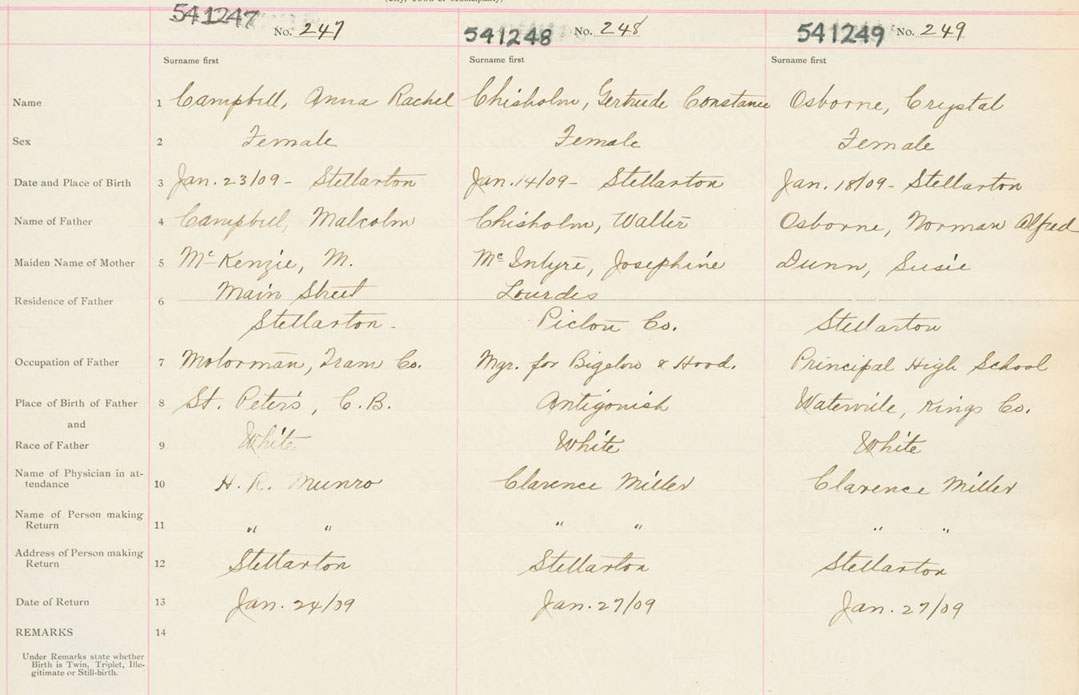 541247 No. 247 541248 No. 248 541249 No. 249
Surname first Surname first Surname first
Name 1 Campbell, Anna Rachel Chisholm, Gertrude Constance Osborne, Crystal
Sex 2 Female Female Female
Date and Place of Birth 3 Jan. 23/09 - Stellarton Jan. 14/09 - Stellarton Jan. 18/09 - Stellarton
Name of Father 4 Campbell, Malcolm Chisholm, Walter Osborne, Norman Alfred
Maiden Name of Mother 5 McKenzie, M. McIntyre, Josephine Dunn, Susie
Residence of Father 6 Main Street Lourdes
Stellarton - Pictou Co. Stellarton
Occupation of Father 7 Motorman, Tram Co. Mgr. for Bigelow & Hood. Principal High School
Place of Birth of Father 8 St. Peter's, C.B. Antigonish Waterville, Kings Co.
and
Race of Father 9 White White White
Name of Physician in at-
tendance 10 H. R. Munro Clarence Miller Clarence Miller
Name of Person making
Return 11 " " " " " "
Address of Person making
Return 12 Stellarton Stellarton Stellarton
Date of Return 13 Jan. 24/09 Jan. 27/09 Jan. 27/09
REMARKS 14
Under Remarks state whether
Birth is Twin, Triplet, Ille-
gitimate or Still-birth.